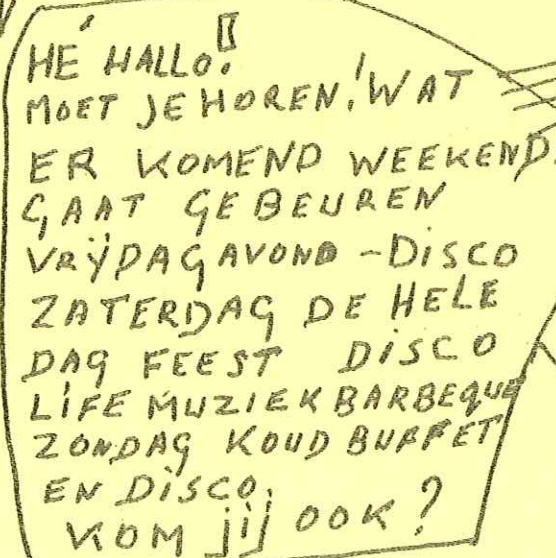 HÉ HALLO!
MOET JE HOREN! WAT
ER KOMEND WEEKEND
GAAT GEBEUREN
VRIJDAGAVOND - DISCO
ZATERDAG DE HELE
DAG FEEST DISCO
LIFE MUZIEK BARBEQUE
ZONDAG KOUD BUFFET
EN DISCO.
KOM JIJ OOK?